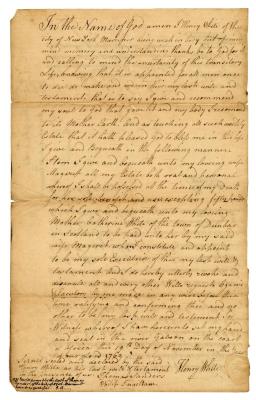 In the Name of God amen I Henry White of the
City of New York Mariner being weak in body but of sound
mind memory and understanding thanks be to God for it
and calling to mind the uncertainty of this transitory
Life, knowing that it is appointed for all men once
to die do make and ordain this my last will and
testament, that is to say I give and recommend
my soul to God that gave it and my body I recommend
to its Mother Earth, and as touching all such worldly
Estate that it hath pleased God to bless me in this life
I give and Bequeath in the following manner
Item I give and bequeath unto my loving wife
Margret all my Estate both real and personal
where of I shall be possessed at the time of my Death
for her sole use and excepting fifty Pounds
which I give and bequeath unto my loving
Mother Catherine White of the town of Dunbar
in Scotland to be paid unto her by my said
wife Margret whom I constitute and appoint
to be my sole Executrix of this my last will &
testament And I do hereby utterly revoke and
disannul all and every other Wills requests
by me in any wise before this
time and confirming this and no
other to be my last will and testament In
Witness whereof I have hereunto set my hand
and seal on the
this 19 Day of November in the
year of our Lord 1763
Signed sealed and declared by the said
Henry White as his last will & testament
in the presence of us
Henry White
Philip Ingelham